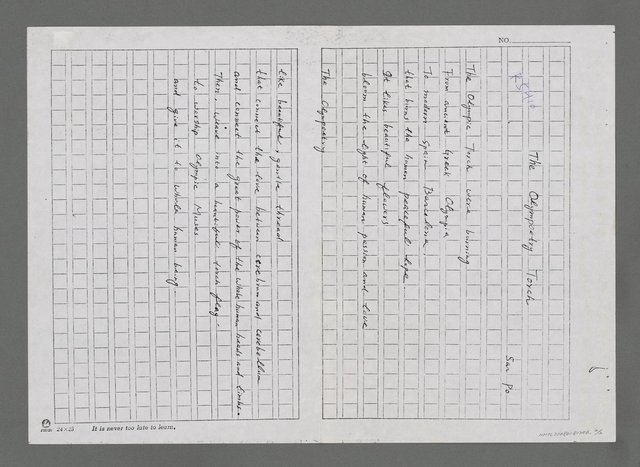 NO.
The Olympoetry Torch
Sar Po
The Olympic Torch were burning
From ancient Greek Olympia
To modern Spain Barcelona.
that burns the human peaceful hope
It likes beautiful flowers
bloom the light of human passion and love
The Olympoetry
like beautiful, gentle thread
that connect the love between cerebrum and cerebellum
and connect the great power of the whole human heads and limbs.
Then, weave into a beautiful torch flag.
to worship Olympic Muses
and give it to whole human being.
24×25
It is never too late to learn.